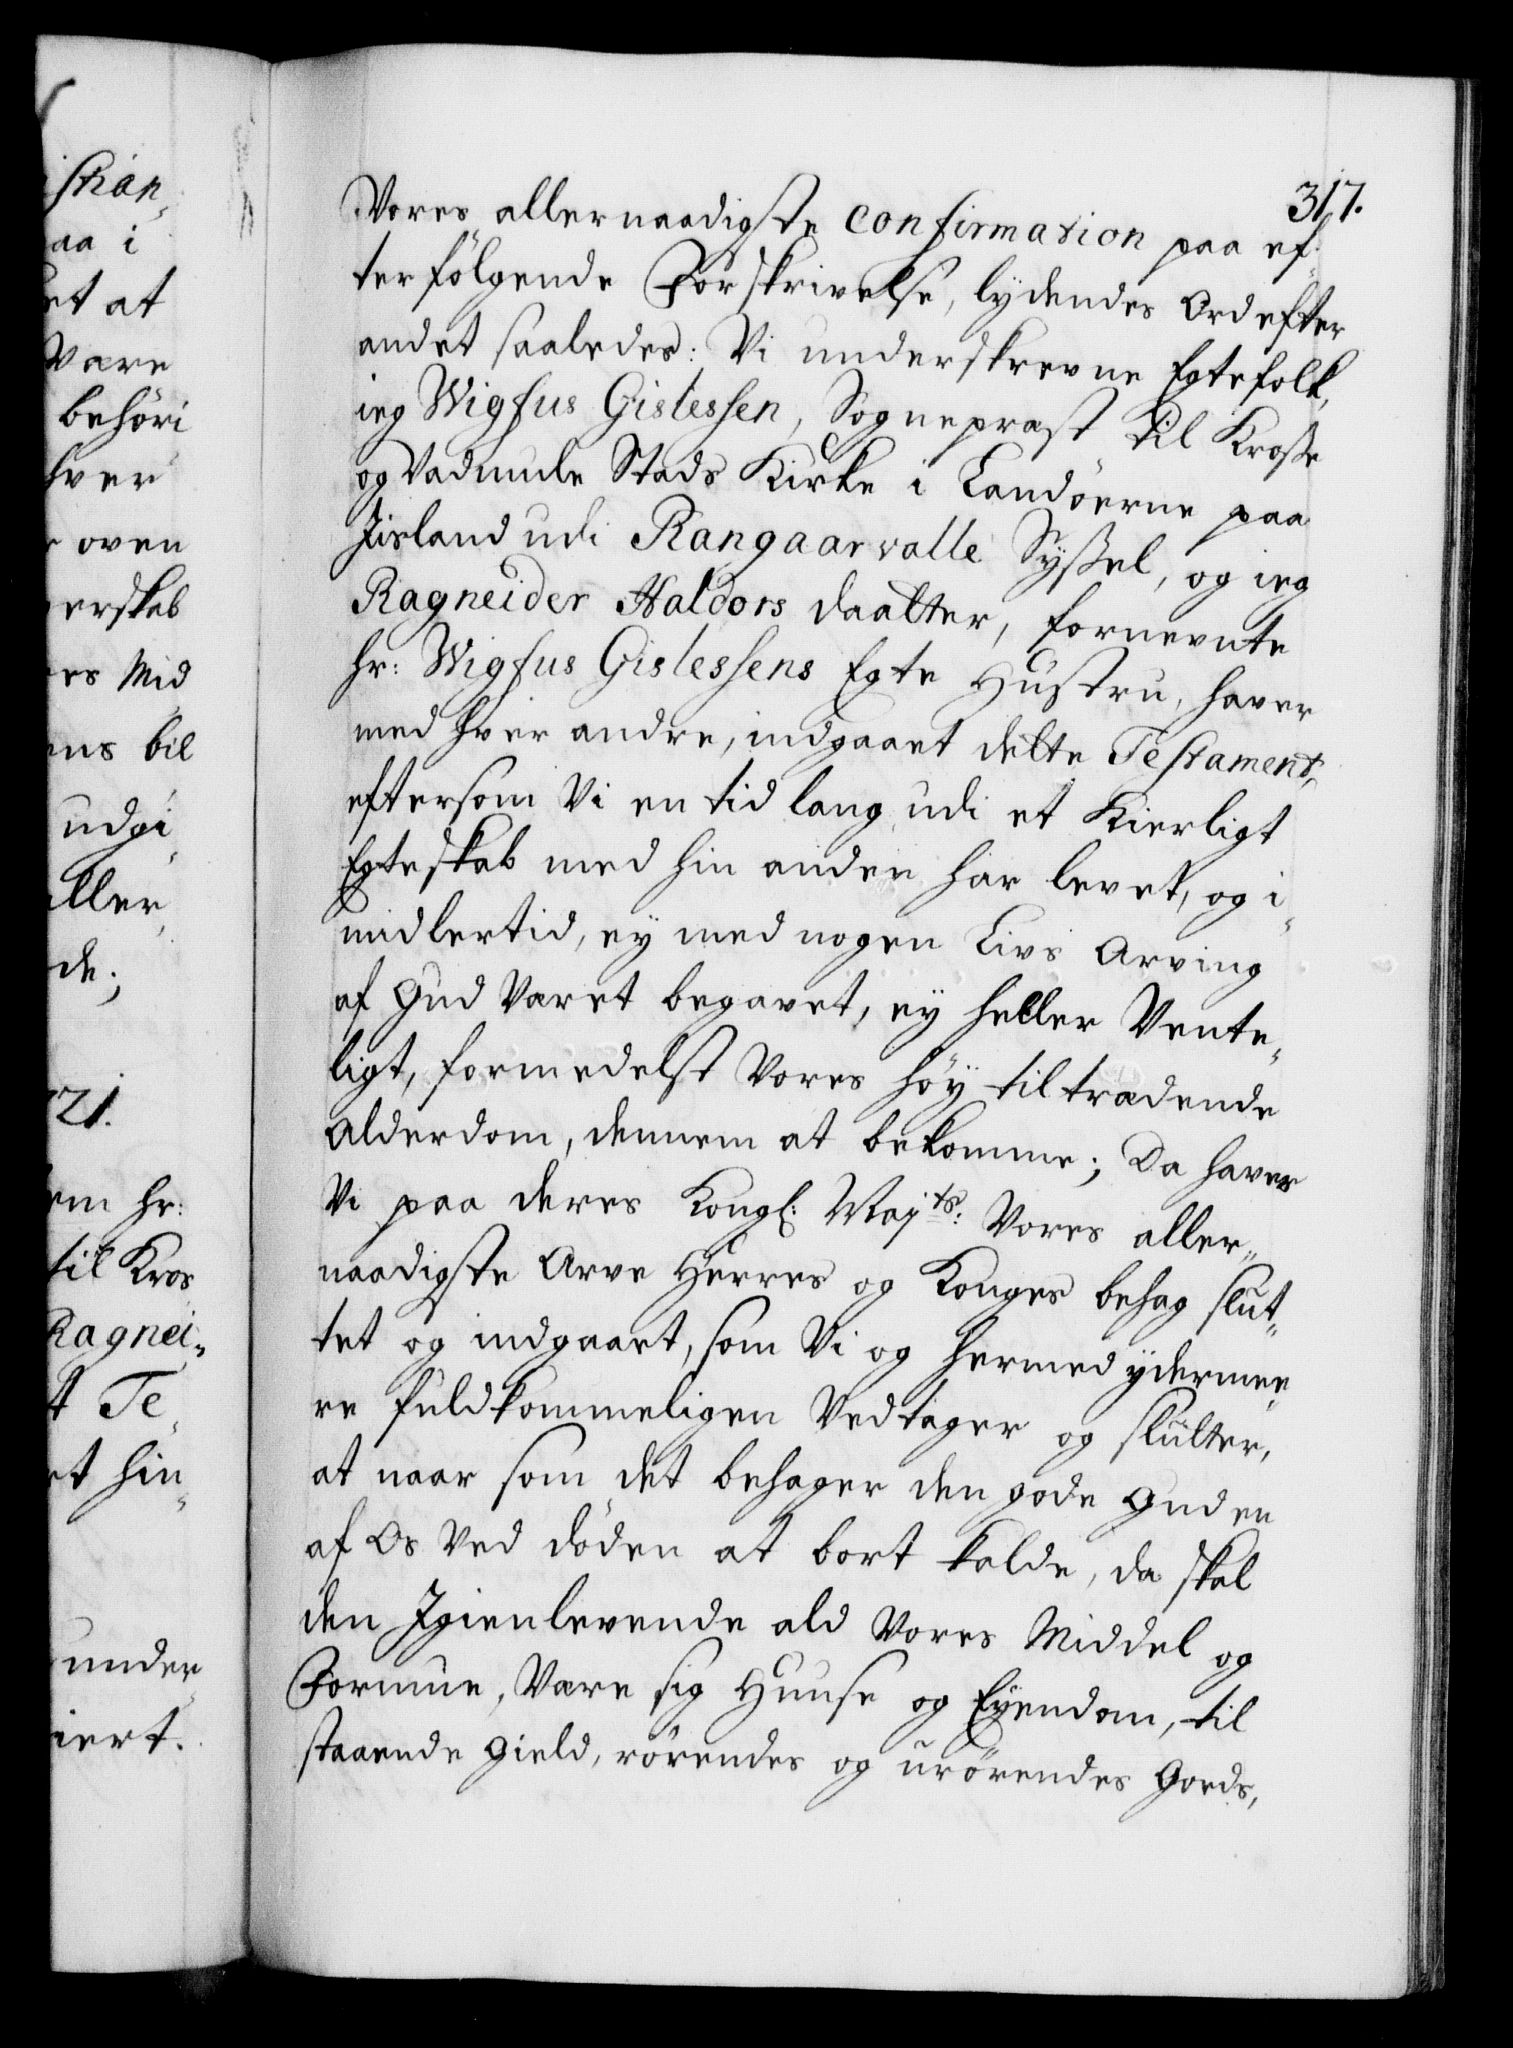 istian„
aa i
et at
være
behöri
hver
r oven
erskab
es Mid
ens bil
udgi„
aller„
de;
721.
em hr:
til Kros
Ragnei„
t Te„
et hin„
under„
iert.
317.
Vores allernaadigste confirmation paa ef„
terfölgende Forskrivelse, lydendes Ord efter
andet saaledes: Vi underskrevne Egtefolk,
ieg Wigfus Gislessen, Sognepræst til Krosse
og Vadmule Stads Kirke i Landöerne paa
Jisland udi Rangaarvalle Syssel, og ieg
Ragneider Haldors daatter, fornevnte
hr: Wigfus Gislessens Egte Hustru, haver
med hver andre, indgaaet dette Testament,
eftersom Vi en tid lang udi et Kierligt
Egteskab med hin anden har levet, og i„
midlertid, ey med nogen Livs Arving
af Gud været begavet, ey heller Vente„
ligt, formedelst Vores höy tiltrædende
Alderdom, dennem at bekomme; Da haver
Vi paa deres Kongl: Majts: Vores aller„
naadigste Arve Herres og Konges behag slut„
tet og indgaaet, som Vi og hermed ydermee„
re fuldkommeligen Vedtager og slutter,
at naar som det behager den gode Gud en
af Os ved döden at bort kalde, da skal
den Igienlevende ald Vores Middel og
Formue, være sig Huuse og Eyendom, til
staaende Gield, rörendes og urörendes Gords,